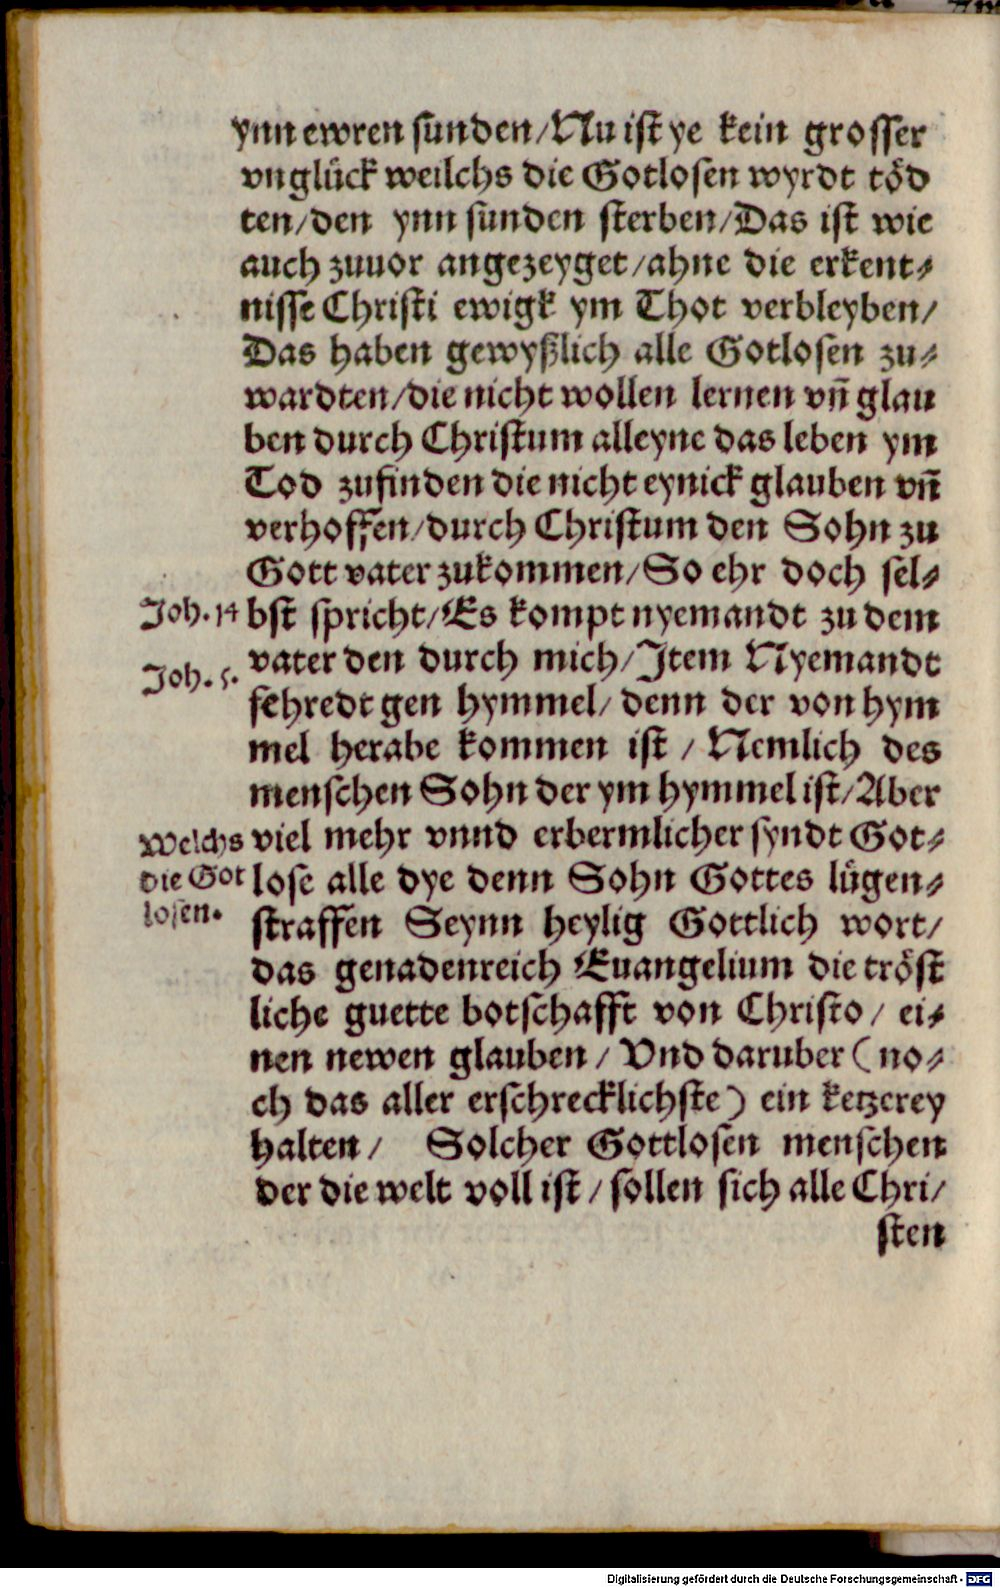 ynn ewren sunden/Nu ist ye kein grosser
vnglück weilchs die Gotlosen wyrdt töd
ten/den ynn sunden sterben/Das ist wie
auch zuuor angezeyget/ahne die erkent⸗
nisse Christi ewigk ym Thot verbleyben/
Das haben gewyßlich alle Gotlosen zu⸗
wardten/die nicht wollen lernen vn̄ glau
ben durch Christum alleyne das leben ym
Tod zufinden die nicht eynick glauben vn̄
verhoffen/durch Christum den Sohn zu
Gott vater zukommen/So ehr doch sel⸗
Joh. 14 bst spricht/Es kompt nyemandt zu dem
Joh. 5. vater den durch mich/Item Nyemandt
fehredt gen hymmel/ denn der von hym
mel herabe kommen ist / Nemlich des
menschen Sohn der ym hymmel ist/Aber
Welchs viel mehr vnnd erbermlicher syndt Got⸗
die Got lose alle dye denn Sohn Gottes lügen⸗
losen. straffen Seynn heylig Gottlich wort/
das genadenreich Euangelium die tröst
liche guette botschafft von Christo/ ei⸗
nen newen glauben / Vnd daruber (no⸗
ch das aller erschrecklichste) ein ketzerey
halten/ Solcher Gottlosen menschen
der die welt voll ist/ sollen sich alle Chri/
sten
Digitalisierung gefördert durch die Deutsche Forschungsgemeinschaft - DFG